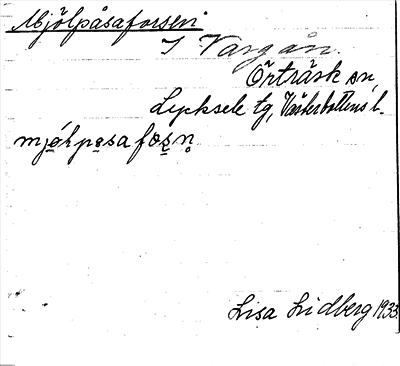 Mjölpåsaforsen
I Vargån.
Örträsk sn,
Lycksele tg, Västerbottens l.
mjó̱lpo̱safo̱s̱n̥
Lisa Lidberg 1933.